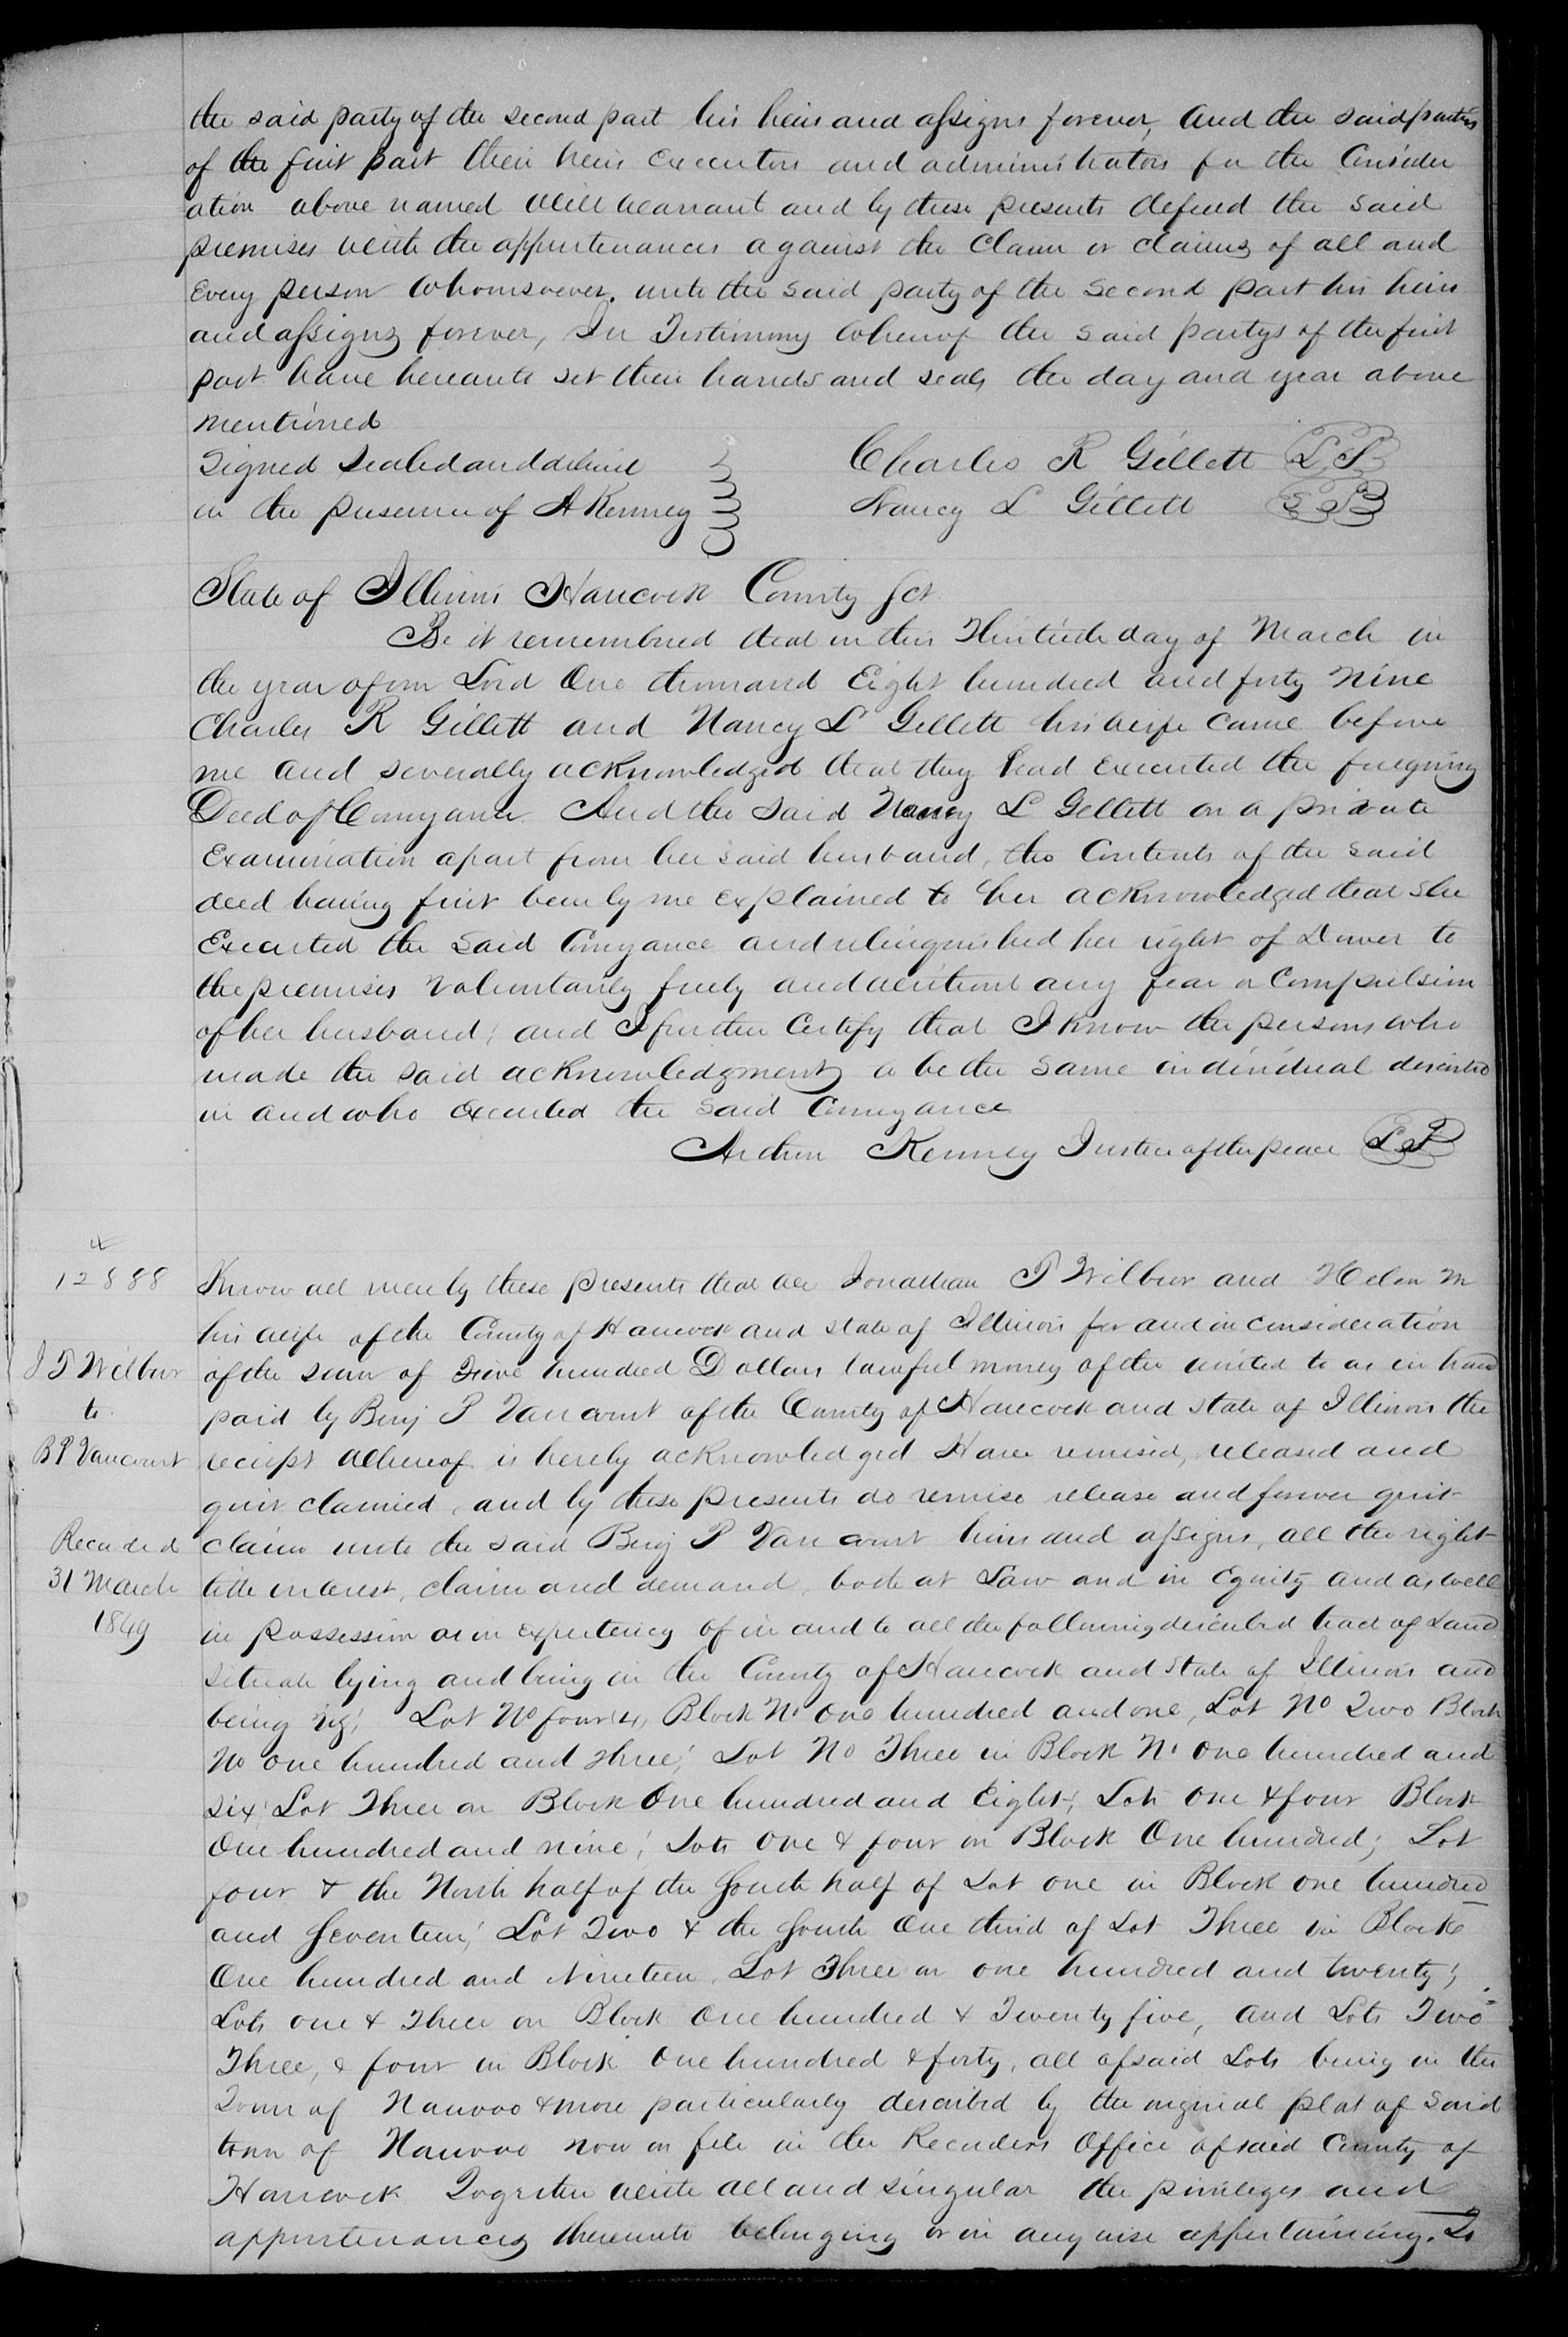 the said party of the second part his heirs and assigns forever, And the said parties
of the first part their heirs executors and administrators for the Consider
ation above named Will Warrant and by these presents defend the said
premises with the appurtenances against the Claim or claims of all and
Every person Whomsoever. unto the said party of the Second part his heirs
and assigns forever, In Testimony Whereof the said partys of the first
part have hereunto set their hands and seals the day and year above
mentioned
Signed Sealed and delivered
in the presence of A Kenney
Charles R Gillett L S
Nancy L Gillett L S
State of Illinois Hancock County Sct
Be it remembered that on this Thirtieth day of March in
the year of our Lord One thousand Eight hundred and forty Nine
Charles R Gillett and Nancy L Gillett his wife came before
me and severally acknowledged that they had executed the foregoing
Deed of Conveyance And the said Nancy L Gillett on a private
Examination apart from her said husband, the Contents of the said
deed having first been by me explained to her acknowledged that she
Executed the said Conveyance and relinquished her right of Dower to
the premises Voluntarily freely and without any fear or Compulsion
of her husband; and I further Certify that I know the persons who
made the said acknowledgment to be the same individual described
in and who executed the said Conveyance
Kenney Justice of the peace L S
12888
J T Wilbur
to
B P Vancourt
Recorded
31 March
1849
Know all men by these Presents that We Jonathan T Wilbur and Helen M
his wife of the County of Hancock and state of Illinois for and in consideration
of the sum of Five hundred Dollars lawful money of the united to us in hand
paid by Benj P Van court of the County of Hancock and state of Illinois the
receipt Whereof is hereby acknowledged Have remised, released and
quit claimed, and by these presents do remise release and forever quit
claim unto the said Benj P Van court heirs and assigns, all the right
title interest, claim and demand, both at Law and in Equity and as well
in possession as in expectency of in and to all the following described tract of Land
Situate lying and being in the County of Hancock and State of Illinois and
being viz; Lot No four (4) Block No One hundred and one, Lot No Two Block
No one hundred and three; Lot No Three in Block No One hundred and
six; Lot Three on Block One hundred and Eight; Lots one & four Block
One hundred and nine; Lots One & four on Block One hundred; Lot
four & the North half of the South half of Lot one in Block one hundred
and Seventeen; Lot Two & the South One third of Lot Three in Block
One hundred and Nineteen, Lot Three on one hundred and twenty;
Lots one & Three on Block One hundred & Twenty five, and Lots Two
Three, & four in Block One hundred & forty, all of said Lots being in the
Town of Nauvoo & more particularly described by the original plat of said
town of Nauvoo now on file in the Recorders Office of said County of
Hancock Together with all and singular the privileges and
appurtenances thereunto belonging or in any wise appertaining. To